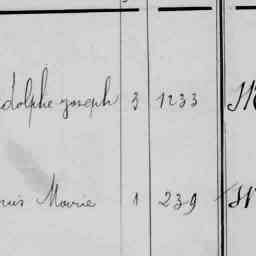 dolphe joseph 3 1233
Marie 1 239